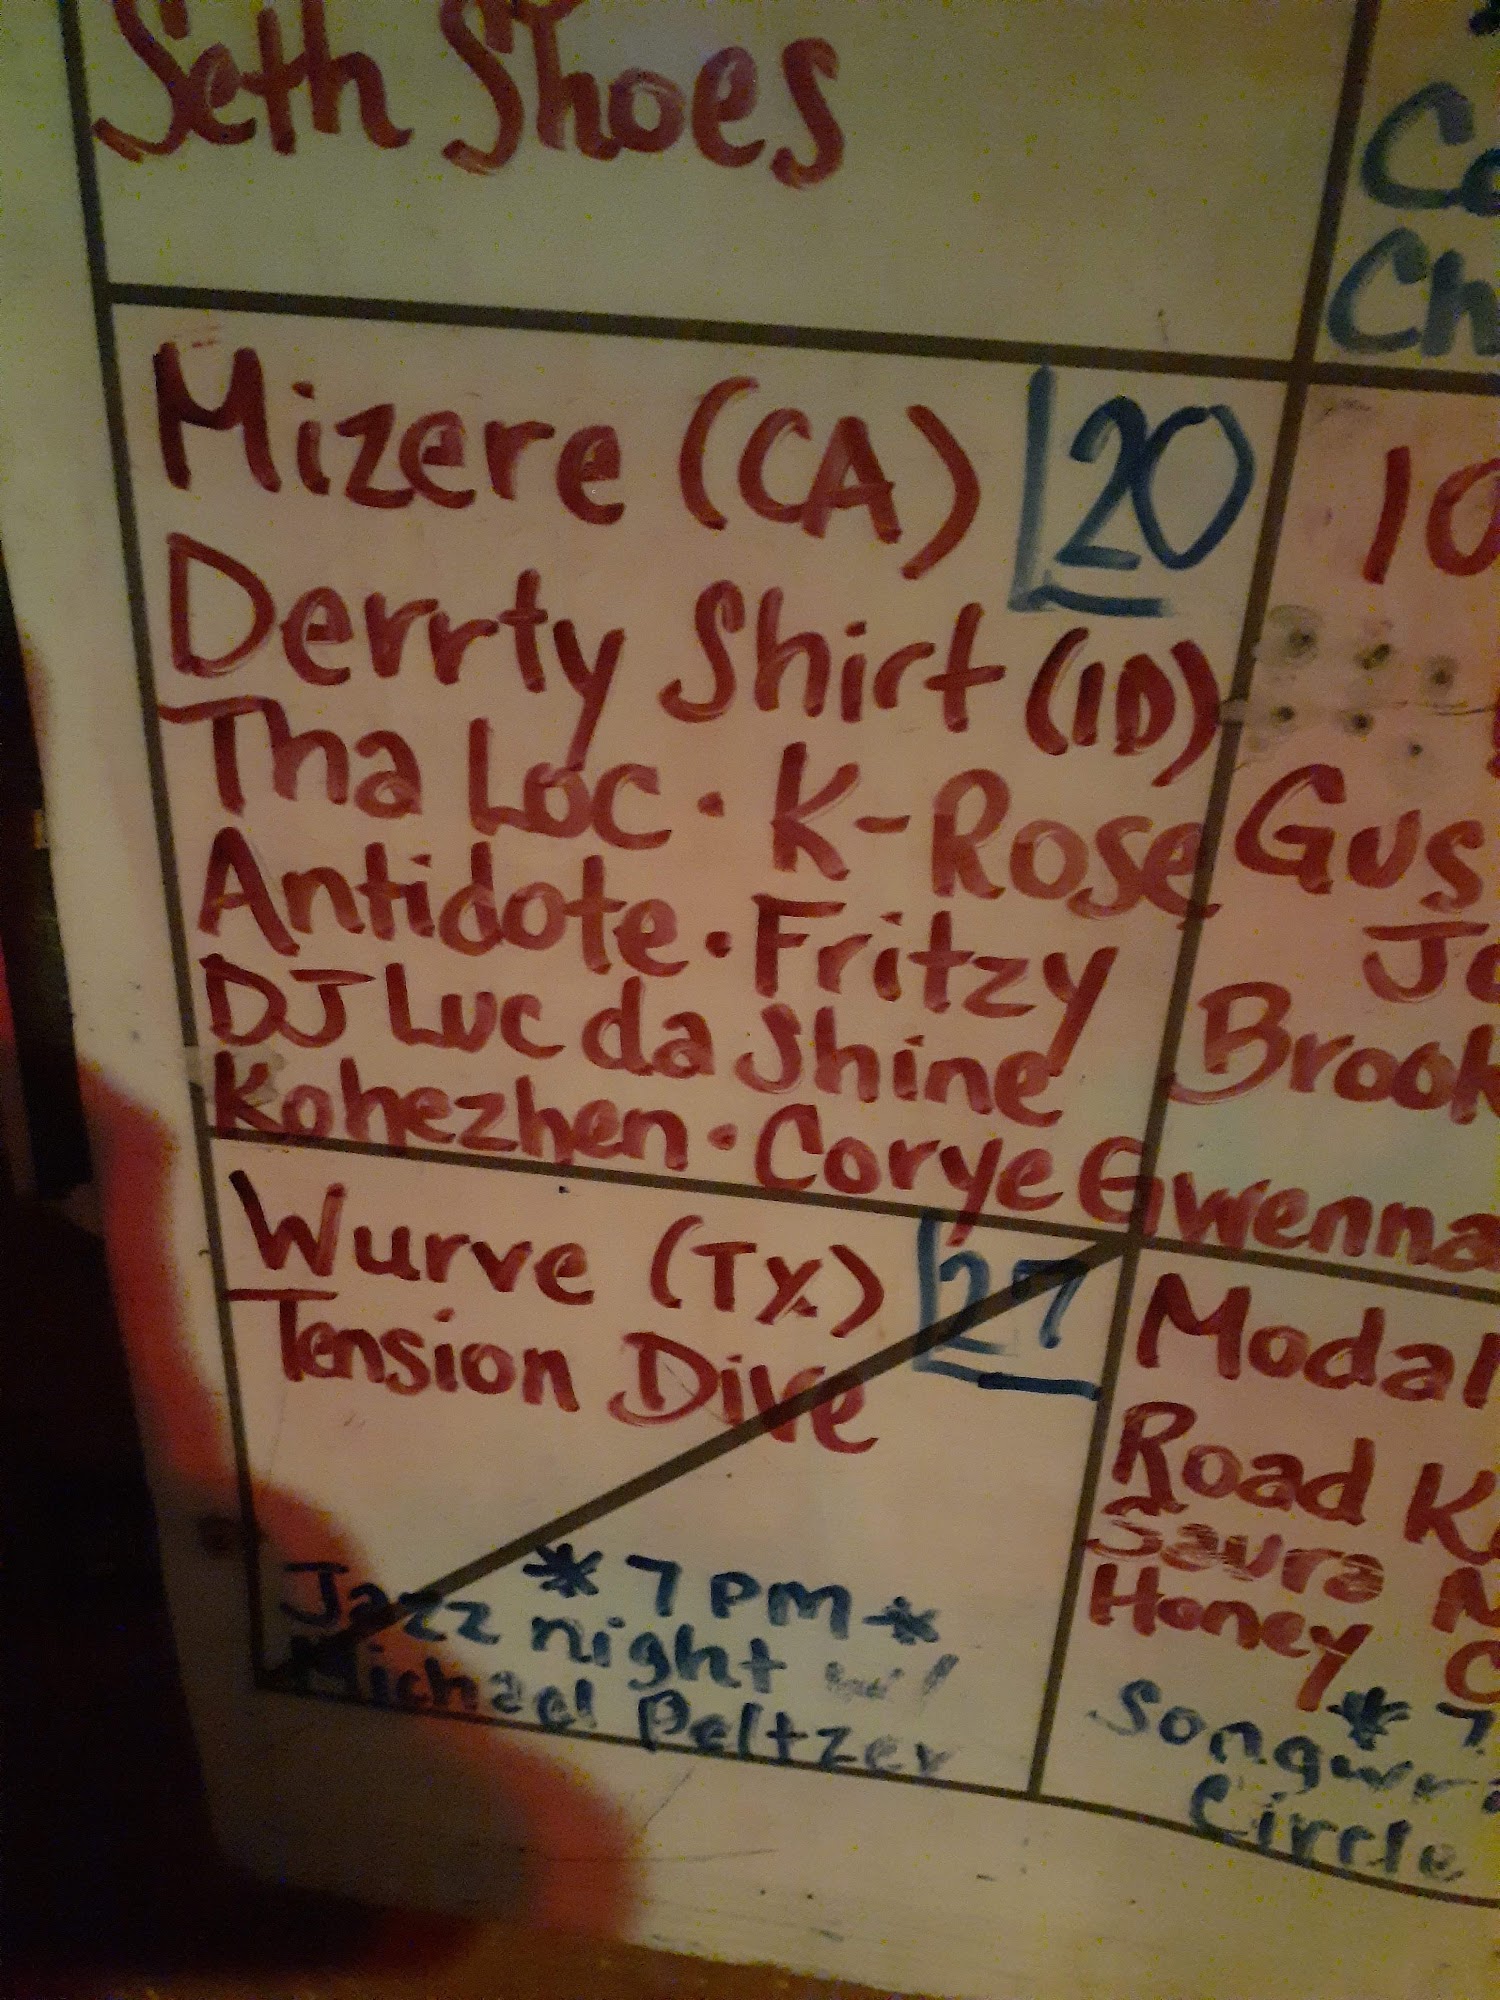 Seth Shoes
Mizere (CA) 20
Derrty Shirt (ID)
Tha Loc · K-Rose
Antidote · Fritzy
DJ Luc da Shine
Kohezhen · Corye Gwenna
Wurve (TX) 27
Tension Dive
* 7 PM *
Jazz night w/
Michael Peltzer
Co
Ch
10
Gus
Jo
Brook
Modal
Road K
Saura M
Honey C
* 7
Songwri
Circle